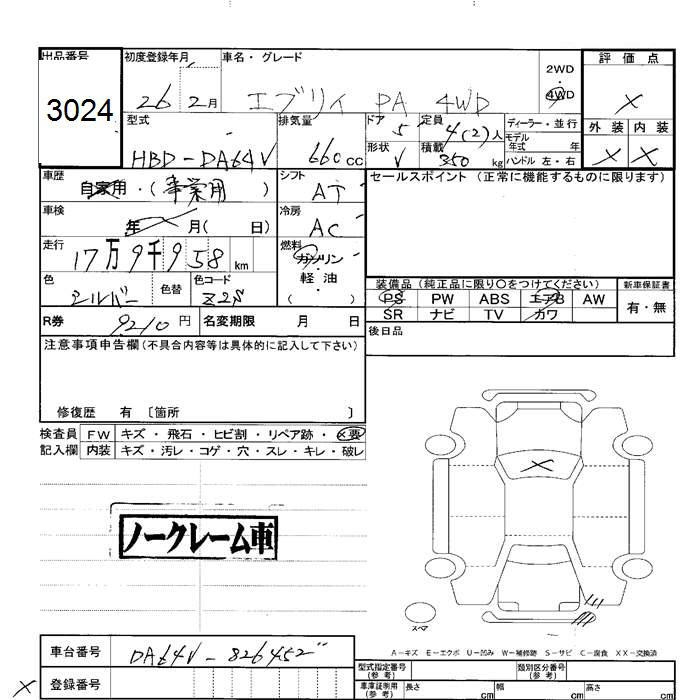 出品番号 初度登録年月 車名・グレード 2WD 評価点
3024 26 2月 エブリィ PA 4WD 4WD ×
型式 排気量 ドア 5 定員 4(2)人 ディーラー・並行 外装 内装
HBD-DA64V 660cc 形状 V 積載 350kg モデル年式 年 × ×
ハンドル 左・右
車歴 自家用・(事業用) シフト AT セールスポイント(正常に機能するものに限ります)
車検 年 × 月( 日) 冷房 AC
走行 17万9千958km 燃料 ガソリン・軽油( )
色 シルバー 色替 色コード Z2S 装備品(純正品に限り○をつけてください) 新車保証書
PS PW ABS エアB AW 有・無
SR ナビ TV カワ
R券 9210円 名変期限 月 日 後日品
注意事項申告欄(不具合内容等は具体的に記入して下さい)
修復歴 有 〔箇所 〕
検査員 FW キズ・飛石・ヒビ割・リペア跡・×要
記入欄 内装 キズ・汚レ・コゲ・穴・スレ・キレ・破レ
×
ノークレーム車
スペア
A-キズ E-エクボ U-凹み W-補修跡 S-サビ C-腐食 XX-交換済
車台番号 DA64V-826452 型式指定番号(参考) 類別区分番号(参考)
× 登録番号 車庫証明用(参考) 長さ cm 幅 cm 高さ cm